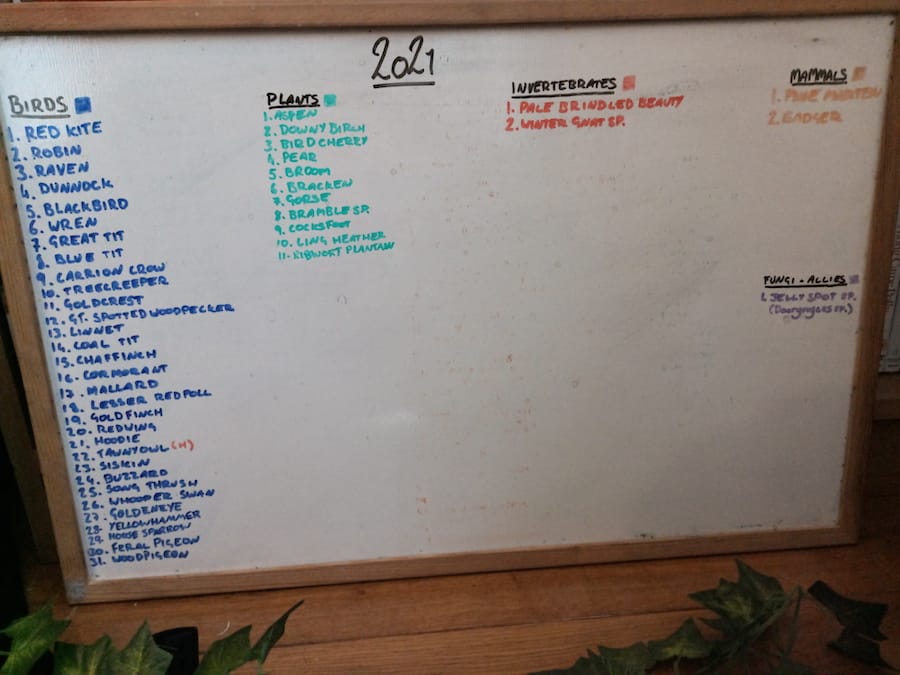 2021
BIRDS
1. RED KITE
2. ROBIN
3. RAVEN
4. DUNNOCK
5. BLACKBIRD
6. WREN
7. GREAT TIT
8. BLUE TIT
9. CARRION CROW
10. TREECREEPER
11. GOLDCREST
12. GT. SPOTTED WOODPECKER
13. LINNET
14. COAL TIT
15. CHAFFINCH
16. CORMORANT
17. MALLARD
18. LESSER REDPOLL
19. GOLDFINCH
20. REDWING
21. HOODIE
22. TAWNY OWL (H)
23. SISKIN
24. BUZZARD
25. SONG THRUSH
26. WHOOPER SWAN
27. GOLDENEYE
28. YELLOWHAMMER
29. HOUSE SPARROW
30. FERAL PIGEON
31. WOODPIGEON
PLANTS
1. ASPEN
2. DOWNY BIRCH
3. BIRD CHERRY
4. PEAR
5. BROOM
6. BRACKEN
7. GORSE
8. BRAMBLE SP.
9. COCKSFOOT
10. LING HEATHER
11. RIBWORT PLANTAIN
INVERTEBRATES
1. PALE BRINDLED BEAUTY
2. WINTER GNAT SP.
MAMMALS
1. PINE MARTEN
2. BADGER
FUNGI + ALLIES
1. JELLY SPOT SP.